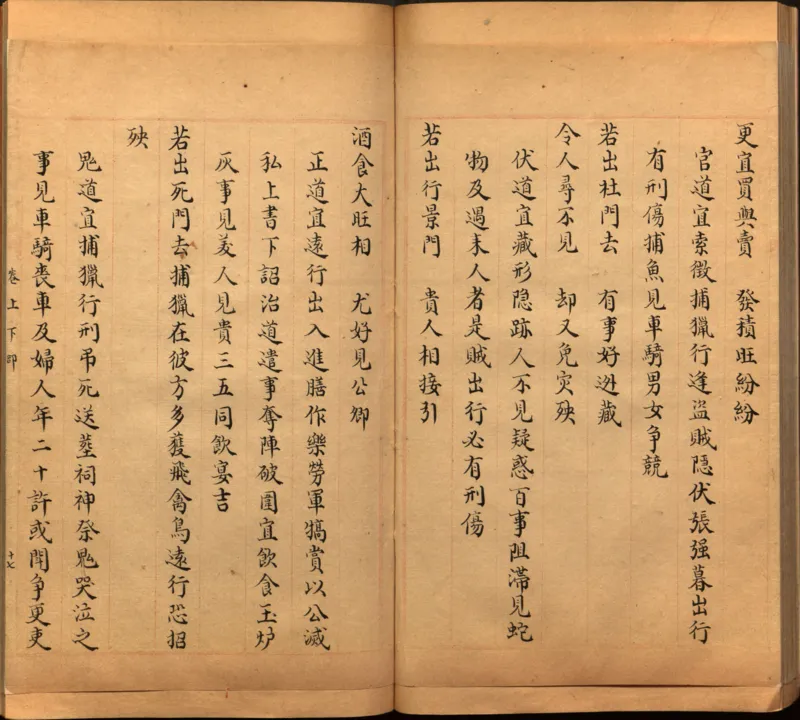 更宜買與賣　發積旺紛紛
官道宜索徵捕獵行逢盜賊隠伏張强暮出行
有刑傷捕魚見車騎男女争競
若出杜門去　有事好迯藏
令人尋不見　却又免灾殃
伏道宜藏形隐跡人不見疑惑百事阻滯見蛇
物及遇末人者是賊出行必有刑傷
若出行景門　貴人相接引
酒食大旺相　尤好見公卿
正道宜遠行出入進膳作樂勞軍犒賞以公滅
私上書下詔治道遣事奪陣破圍宜飲食玉炉
灰事見羙人見貴三五同飲宴吉
若出死門去捕獵在彼方多獲飛禽鳥遠行恐招
殃
鬼道宜捕獵行刑弔死送塟祠神祭鬼哭泣之
事見車騎喪車及婦人年二十許或閗争更吏
卷上下卽
十七